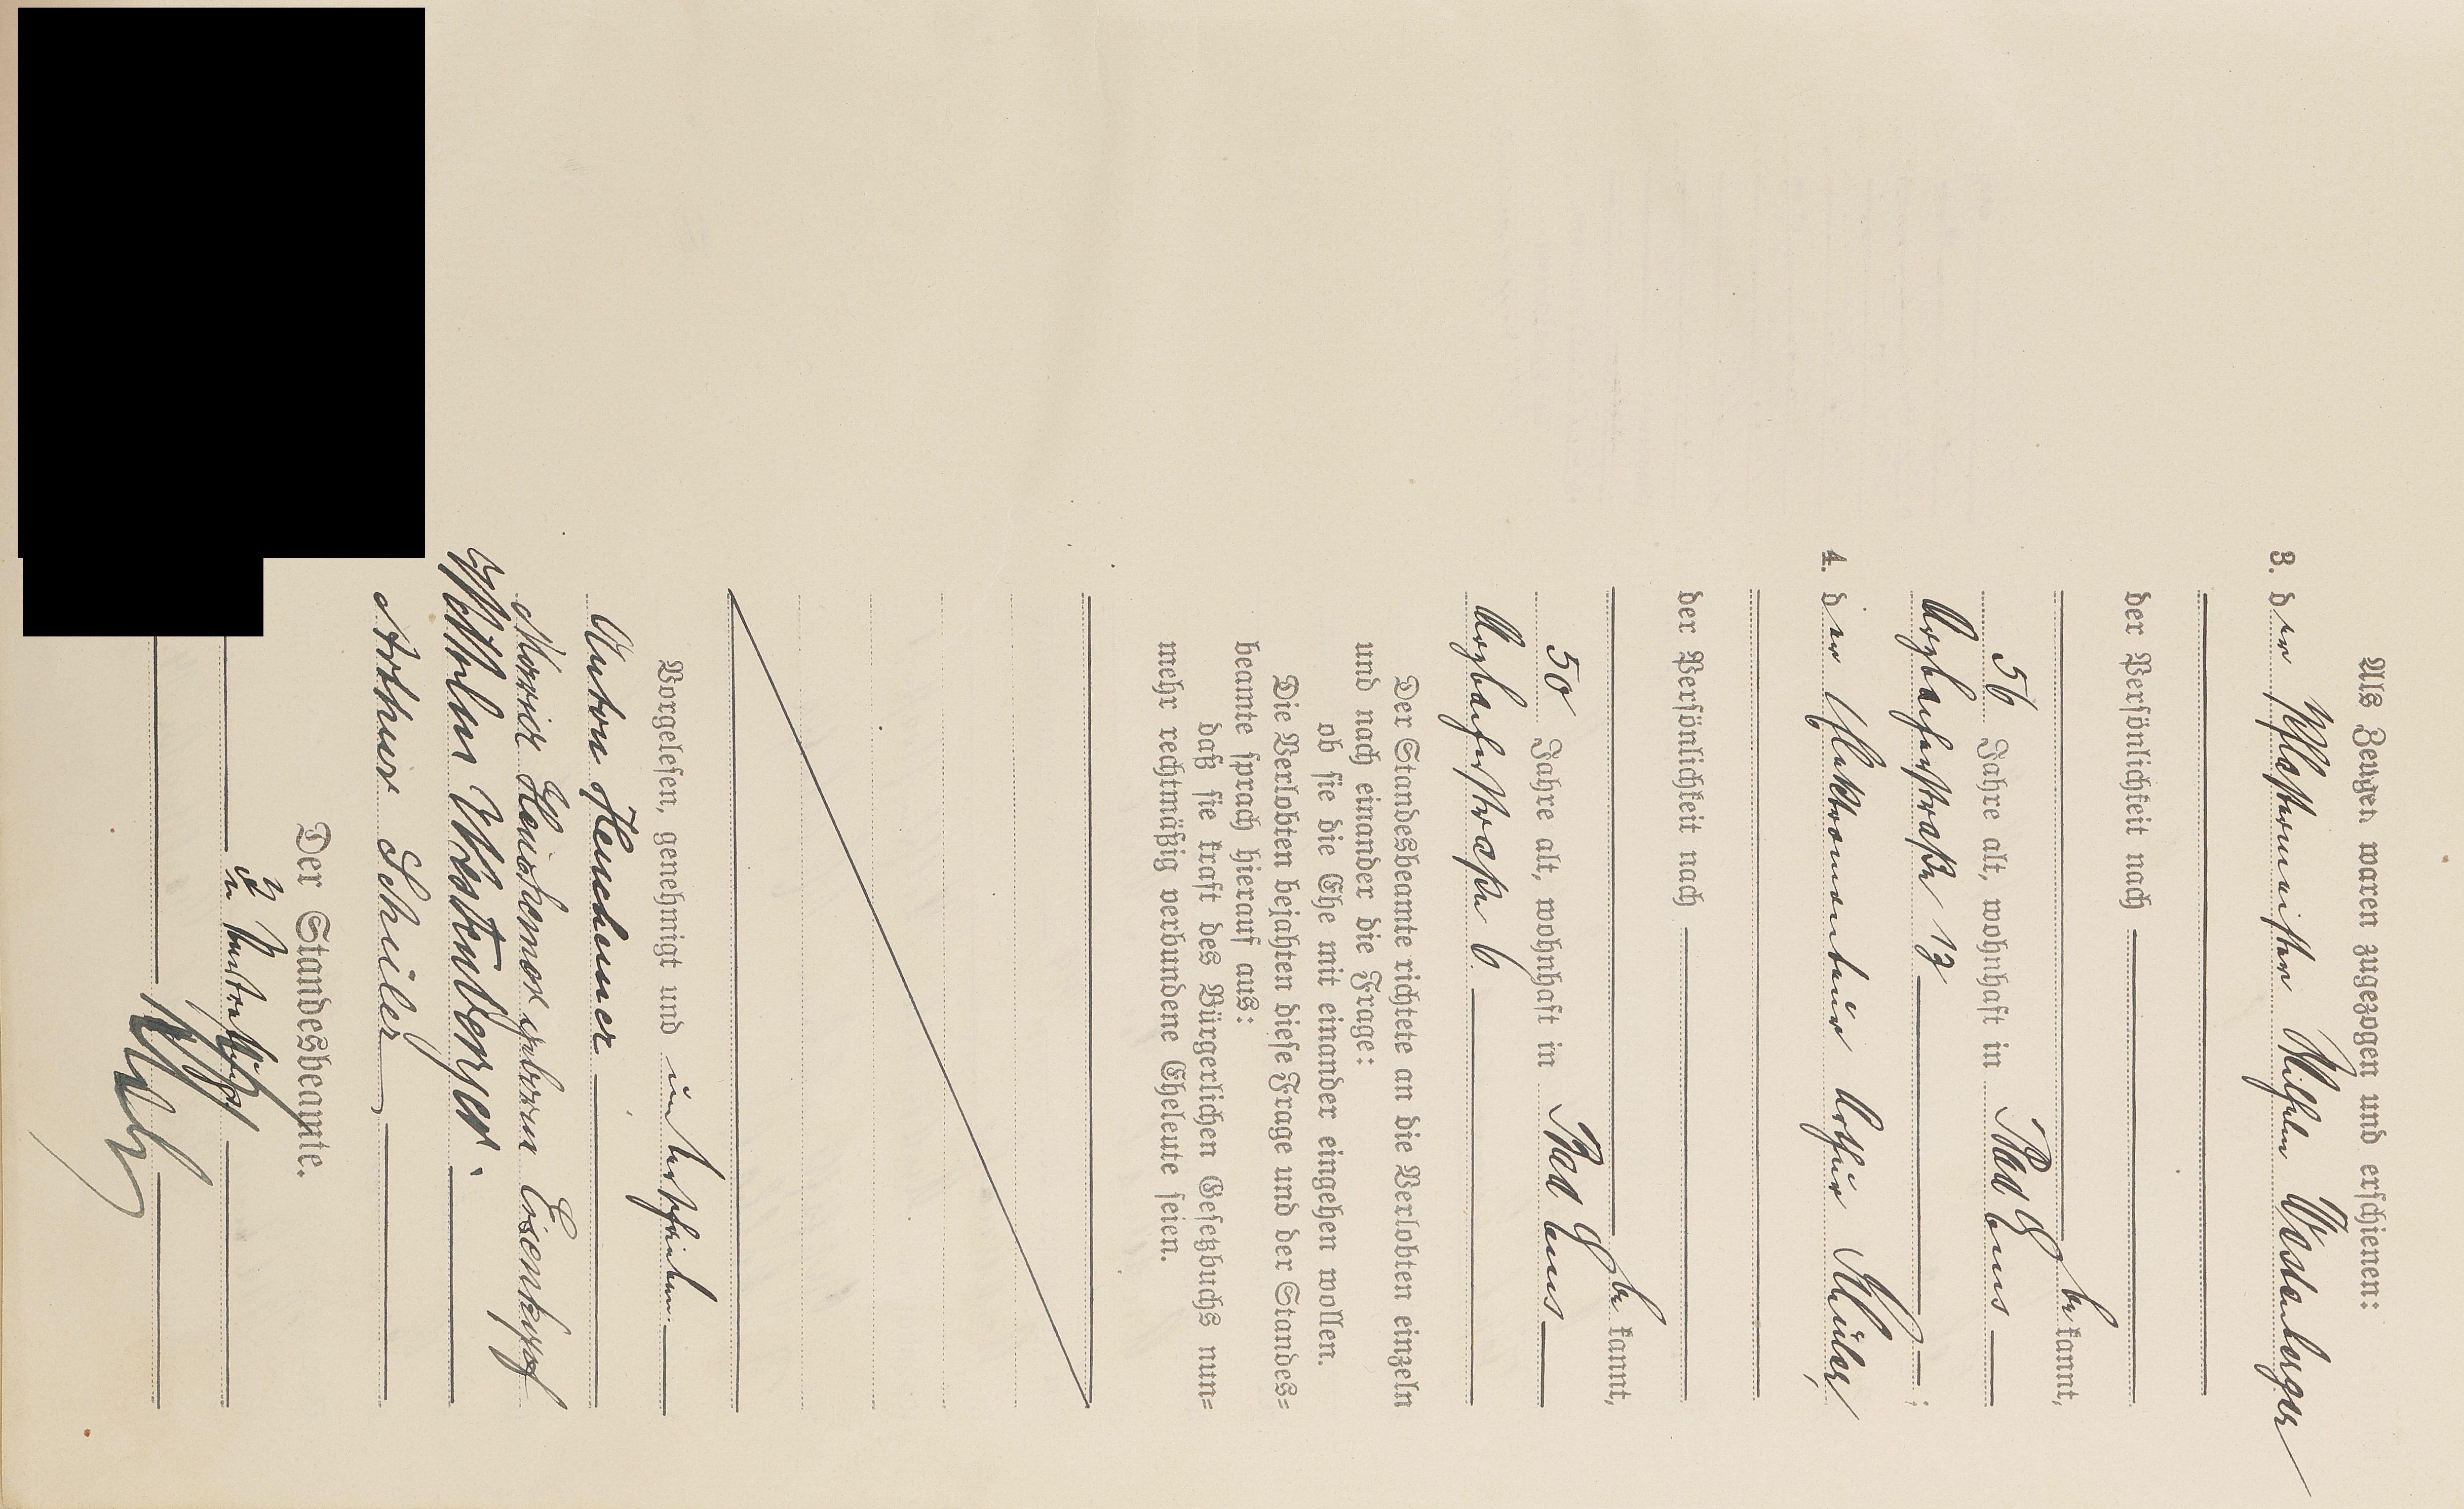 Als Zeugen waren zugezogen und erschienen:
3. der Pflastermeister Wilhelm Westenberger
der Persönlichkeit nach
be kannt,
56 Jahre alt, wohnhaft in Bad Ems
Arzbacherstraße 13 ;
4. der Elektromonteur Arthur Schüler,
der Persönlichkeit nach
be kannt,
50 Jahre alt, wohnhaft in Bad Ems
Arzbacherstraße 6.
Der Standesbeamte richtete an die Verlobten einzeln
und nach einander die Frage:
ob sie die Ehe mit einander eingehen wollen.
Die Verlobten bejahten diese Frage und der Standes=
beamte sprach hierauf aus:
daß sie kraft des Bürgerlichen Gesetzbuchs nun=
mehr rechtmäßig verbundene Eheleute seien.
Vorgelesen, genehmigt und unterschrieben.
Anton Henchemer
Maria Henchemer geborene Eisenkopf
Wilhelm Westenberger.
Arthur Schüler
Der Standesbeamte.
In Vertretung